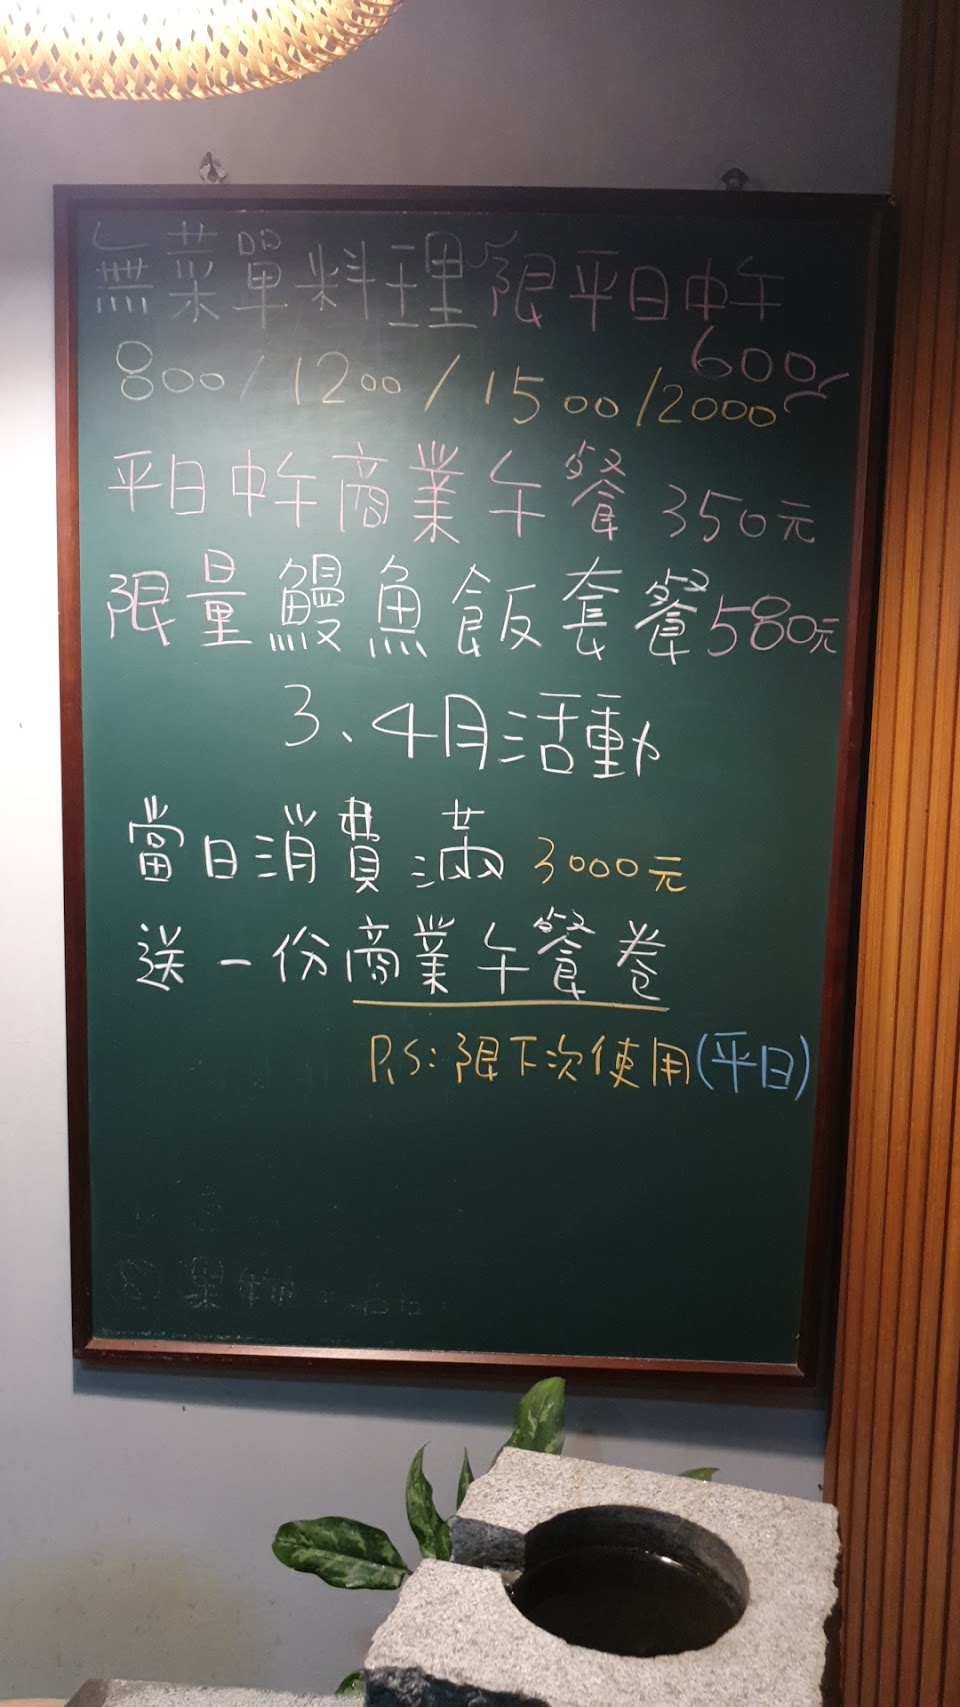 無菜單料理 限平日中午
600
800/1200/1500/2000
平日中午商業午餐 350元
限量鰻魚飯套餐580元
3、4月活動
當日消費滿3000元
送一份商業午餐卷
P.S:限下次使用(平日)